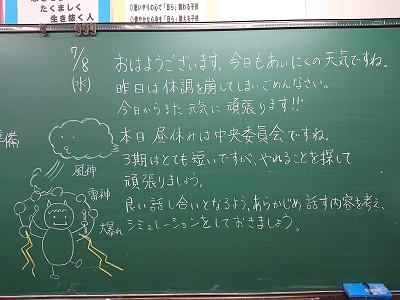 たくましく
生き抜く人
◇思いやりの心で「自ら」関わる子供
◇健やかな心身を「自ら」鍛える子供
7/8
(水)
おはようございます。今日もあいにくの天気ですね。
昨日は体調を崩してしまいごめんなさい。
今日からまた元気に頑張ります!!
本日昼休みは中央委員会ですね。
3期はとても短いですが、やれることを探して
頑張りましょう。
良い話し合いとなるよう、あらかじめ話す内容を考え、
シミュレーションをしておきましょう。
準備
風神
雷神
大暴れ